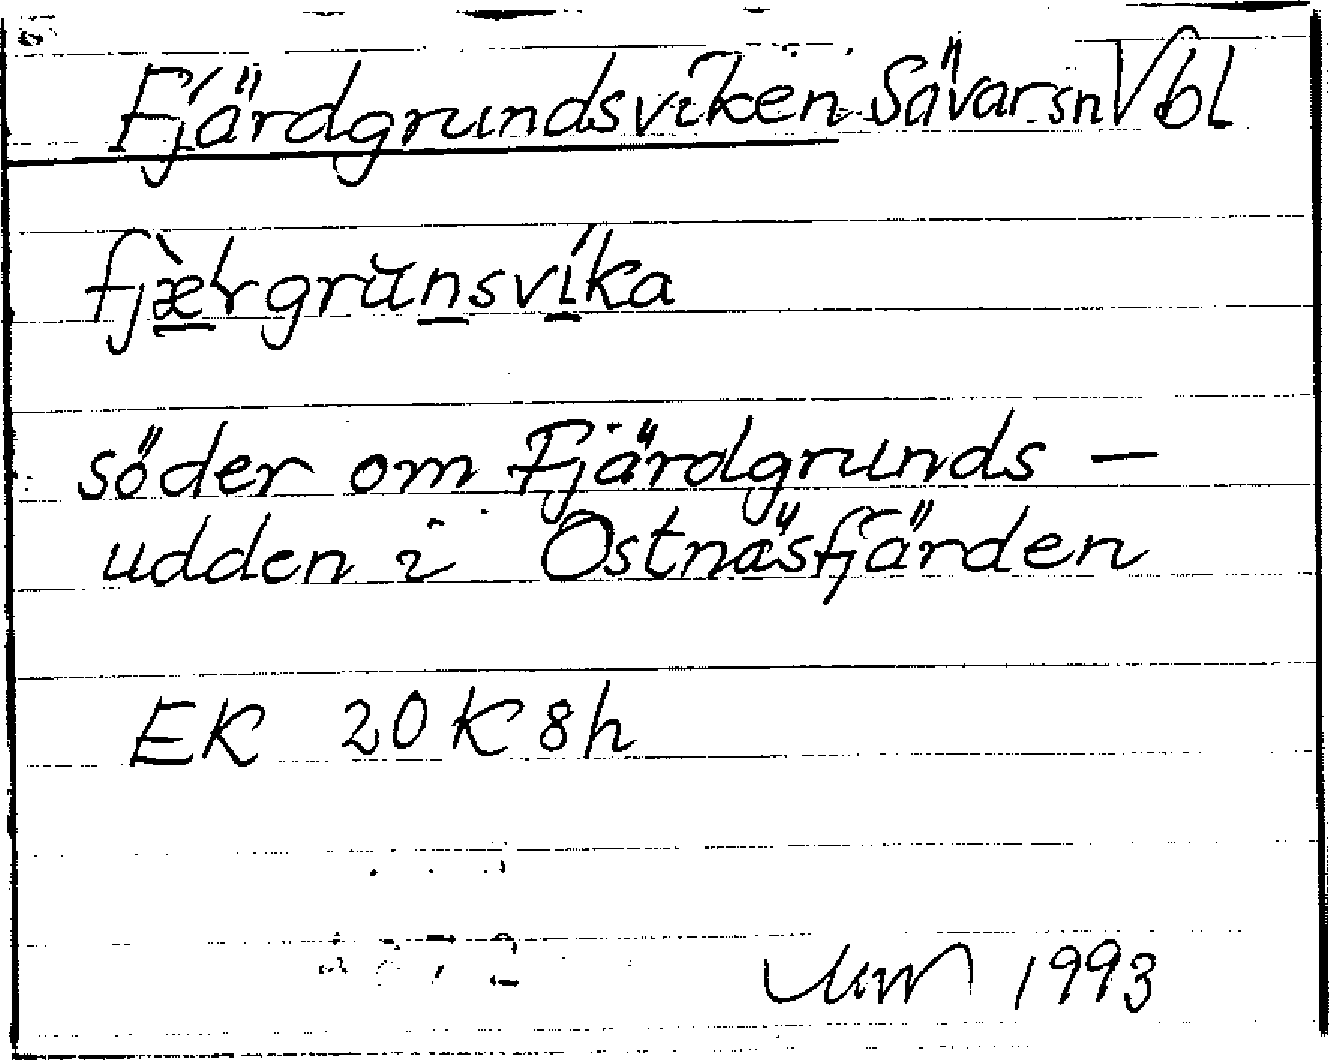 Fjärdgrundsviken Sävar sn Vbl
fjæ̀rgrŭnsvíka
söder om Fjärdgrunds –
udden i Ostnäsfjärden
EK 20K 8h
1993